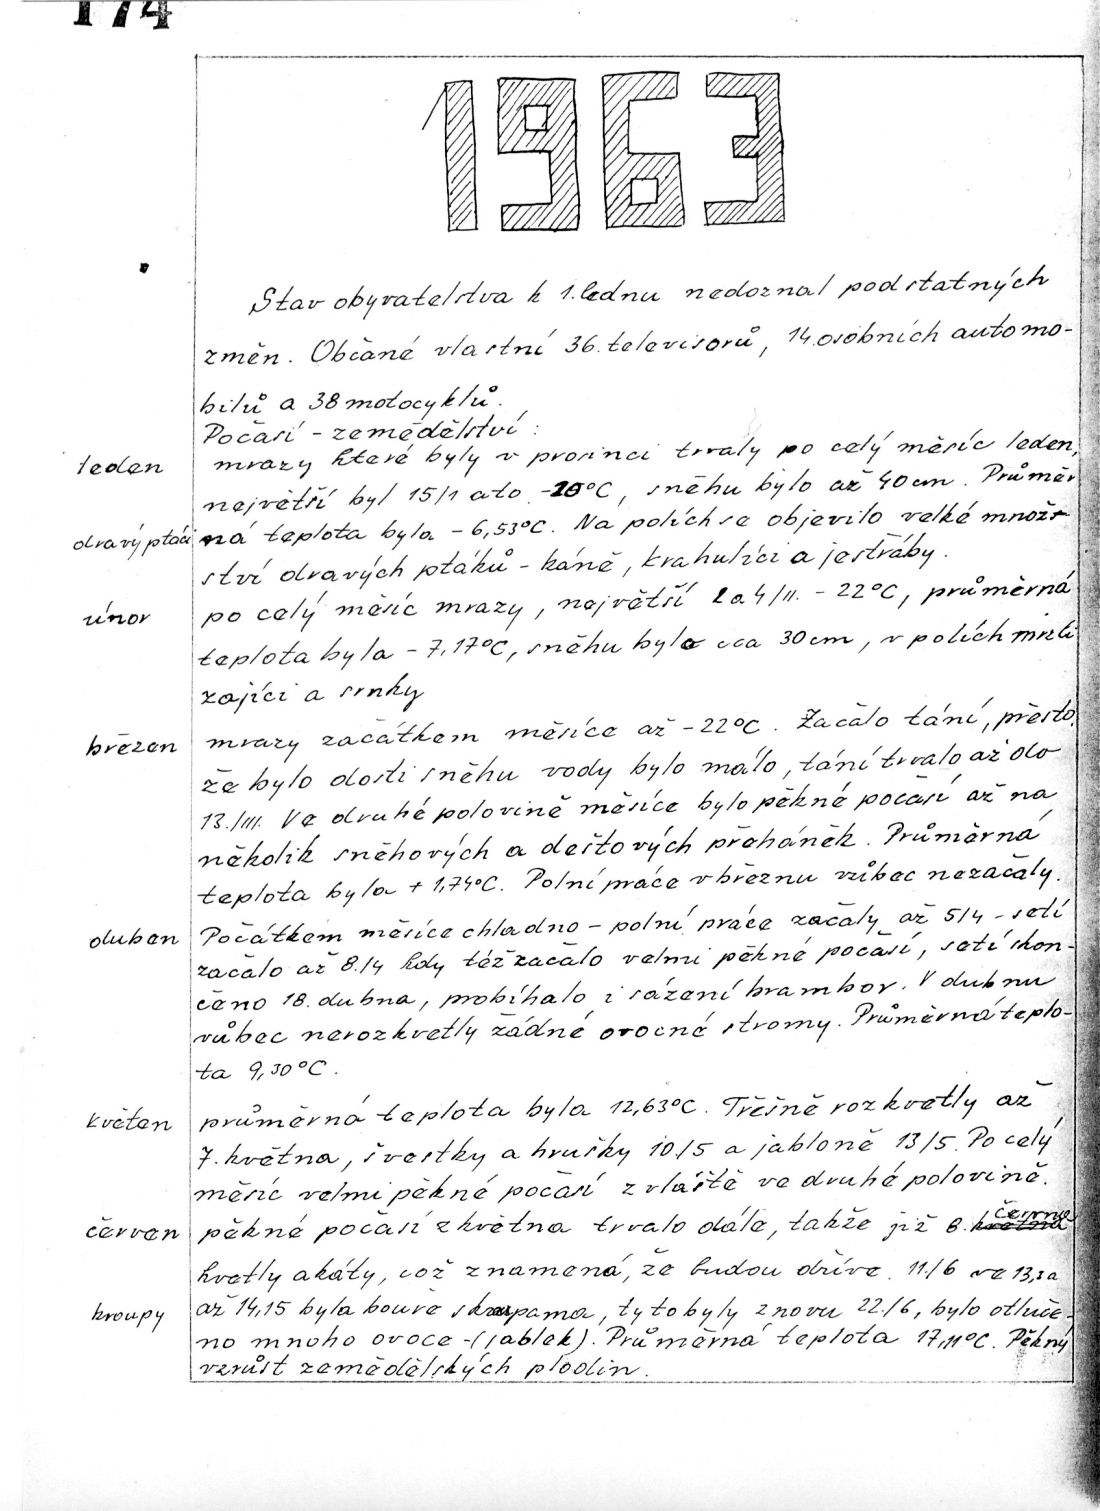 174
1963
Stav obyvatelstva k 1. lednu nedoznal podstatných
změn. Občané vlastní 36. televisorů, 14. osobních automo-
bilů a 38 motocyklů.
Počasí - zemědělství:
leden mrazy které byly v prosinci trvaly po celý měsíc leden,
největší byl 15/1 a to -20°C, sněhu bylo až 40 cm. Průměr
draví ptáci ná teplota byla - 6,53°C. Na polích se objevilo velké množ-
ství dravých ptáků - káně, krahulíci a jestřáby.
únor po celý měsíc mrazy, největší 2 a 4/II. - 22°C, průměrná
teplota byla - 7,17°C, sněhu bylo cca 30 cm, v polích mrzli
zajíci a srnky
březen mrazy začátkem měsíce až -22°C. Začalo tání, přesto,
že bylo dosti sněhu vody bylo málo, tání trvalo až do
13./III. Ve druhé polovině měsíce bylo pěkné počasí až na
několik sněhových a dešťových přeháněk. Průměrná
teplota byla + 1,74°C. Polní práce v březnu vůbec nezačaly.
duben Počátkem měsíce chladno - polní práce začaly až 5/4 - setí
začalo až 8./4 kdy též začalo velmi pěkné počasí, setí skon-
čeno 18. dubna, probíhalo i sázení brambor. V dubnu
vůbec nerozkvetly žádné ovocné stromy. Průměrná teplo-
ta 9,30°C.
květen průměrná teplota byla 12,63°C. Třešně rozkvetly až
7. května, švestky a hrušky 10/5 a jabloně 13/5. Po celý
měsíc velmi pěkné počasí zvláště ve druhé polovině.
červen pěkné počasí z května trvalo dále, takže již 8. června
kvetly akáty, což znamená, že budou dříve. 11/6 ve 13,30
kroupy až 14,15 byla bouře s kroupama, tyto byly znovu 22./6, bylo otluče-
no mnoho ovoce - (jablek). Průměrná teplota 17,11°C. Pěkný
vzrůst zemědělských plodin.